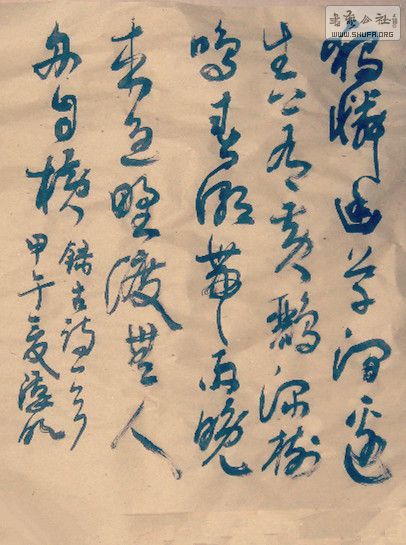 獨憐幽草澗邊
生上有黃鸝深樹
鳴春潮帶雨晚
來急野渡無人
舟自橫
錄古詩一首
甲午夏
公社
WWW.SHUFA.ORG